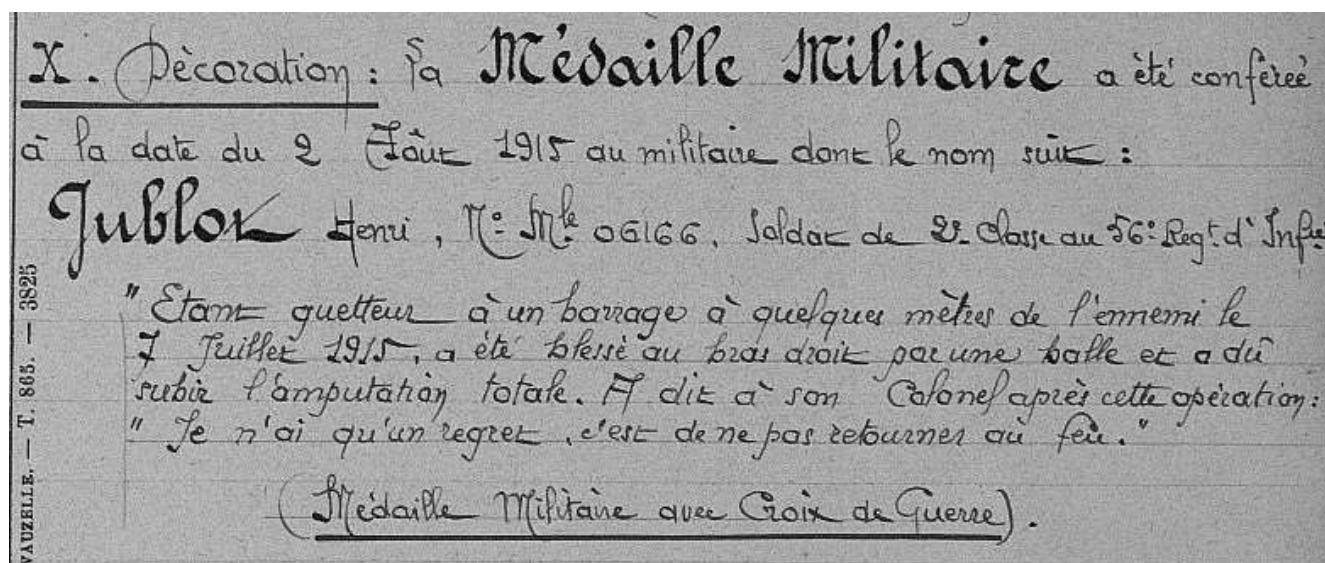 X. Décoration: La Médaille Militaire a été conférée
à la date du 2 Août 1915 au militaire dont le nom suit :
Jublot Henri, N° Mle 06166, Soldat de 2e Classe au 56e Regt. d'Infie
" Etant guetteur à un barrage à quelques mètres de l'ennemi le
7 Juillet 1915, a été blessé au bras droit par une balle et a dû
subir l'amputation totale. A dit à son Colonel après cette opération:
" Je n'ai qu'un regret, c'est de ne pas retourner au feu."
(Médaille Militaire avec Croix de Guerre).
VAUZELLE. — T. 865. — 3825